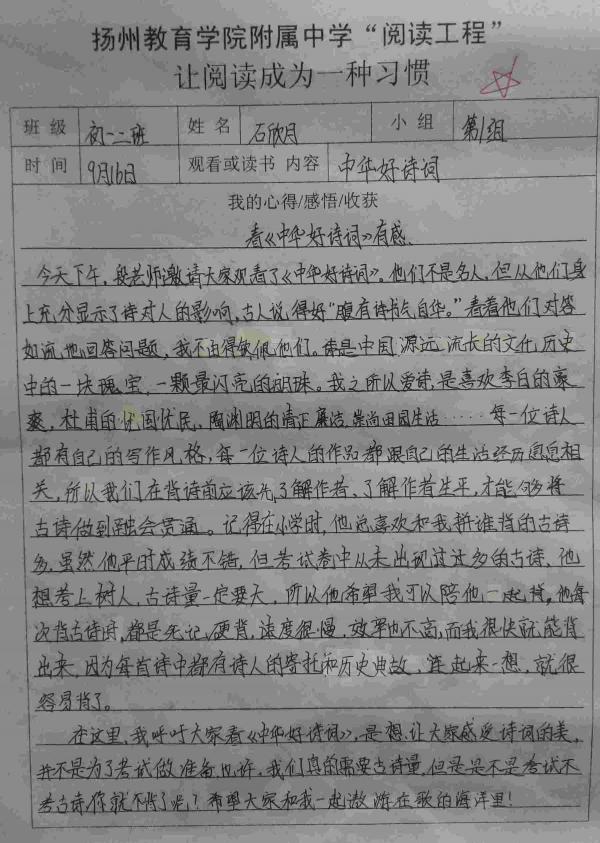 扬州教育学院附属中学“阅读工程”
让阅读成为一种习惯
班级 初一二班 姓名 石欣月 小组 第1组
时间 9月16日 观看或读书 内容 中华好诗词
我的心得/感悟/收获
看《中华好诗词》有感.
今天下午,殷老师邀请大家观看了《中华好诗词》。他们不是名人,但从他们身
上充分显示了诗对人的影响,古人说得好“腹有诗书气自华。”看着他们对答
如流地回答问题,我不由得钦佩他们。诗是中国源远流长的文化历史
中的一块瑰宝,一颗最闪亮的明珠。我之所以爱诗,是喜欢李白的豪
爽,杜甫的忧国忧民、陶渊明的清正廉洁,崇尚田园生活……每一位诗人
都有自己的写作风格,每一位诗人的作品都跟自己的生活经历息息相
关,所以我们在背诗前应该先了解作者、了解作者生平,才能够将
古诗做到融会贯通。记得在小学时,他总喜欢和我拼谁背的古诗
多,虽然他平时成绩不错,但考试卷中从未出现过过多的古诗,他
想考上树人,古诗量一定要大,所以他希望我可以陪他一起背。他每
次背古诗时,都是死记硬背,速度很慢,效率也不高,而我很快就能背
出来,因为每首诗中都有诗人的寄托和历史典故,连起来一想,就很
容易背了。
在这里,我呼吁大家看《中华好诗词》,是想让大家感受诗词的美,
并不是为了考试做准备,也许,我们真的需要古诗量,但是是不是考试不
考古诗,你就不背了呢?希望大家和我一起遨游在歌的海洋里!